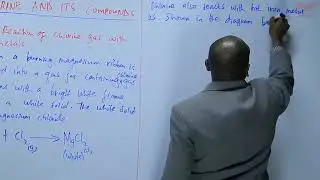 RINE AND ITS COMPOUNDS
Reaction of chlorine gas with
metals
a burning magnesium ribbon is
into a gas jar containing chlorine
gas with a bright white flame
a white solid. The white solid
magnesium chloride
+ Cl₂(g) → MgCl₂(s)
(white)
Chlorine also reacts with hot iron metal
as shown in the diagram be